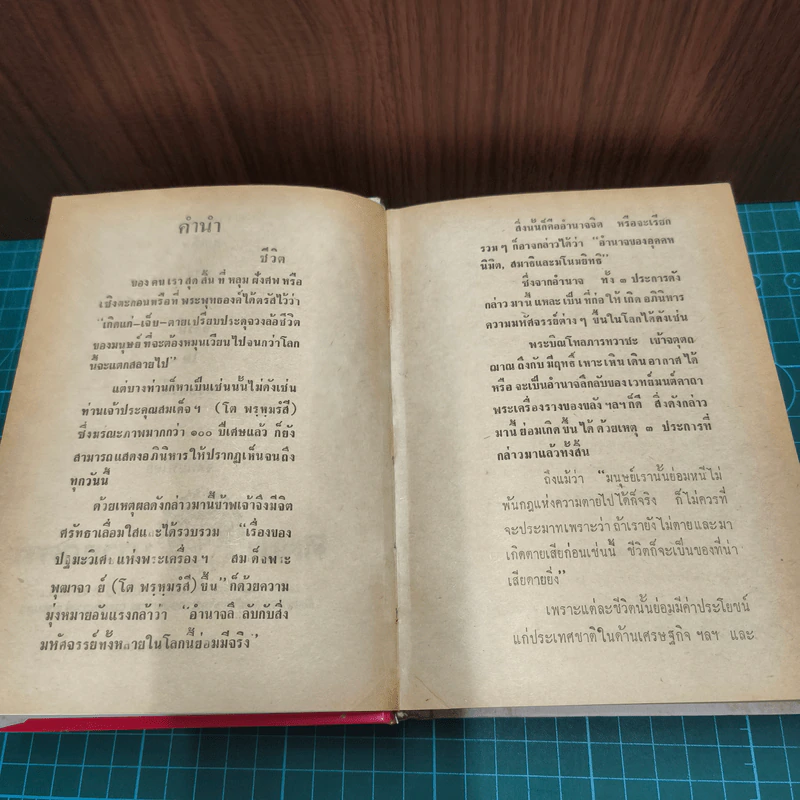 คำนำ
ชีวิต
ของ คน เรา สุด สิ้น ที่ หลุม ฝังศพ หรือ
เชิงตะกอนหรือที่ พระพุทธองค์ ได้ตรัสไว้ว่า
“เกิดแก่-เจ็บ-ตายเปรียบประดุจวงล้อชีวิต
ของมนุษย์ ที่จะต้องหมุนเวียนไปจนกว่าโลก
นี้จะแตกสลายไป”
แต่บางท่านก็หาเป็นเช่นนั้นไม่ดังเช่น
ท่านเจ้าประคุณสมเด็จฯ (โต พรฺหฺมรํสี)
ซึ่งมรณะภาพมากกว่า ๑๐๐ ปีเศษแล้ว ก็ยัง
สามารถแสดงอภินิหารให้ปรากฏเห็นจนถึง
ทุกวันนี้
ด้วยเหตุผลดังกล่าวมานี้ข้าพเจ้าจึงมีจิต
ศรัทธาเลื่อมใสและได้รวบรวม “เรื่องของ
ปฐมะวิเศษแห่งพระเครื่องฯ สมเด็จพระ
พุฒาจา ย์ (โต พรฺหฺมรํสี) ขึ้น” ก็ด้วยความ
มุ่งหมายอันแรงกล้าว่า “อำนาจลึ ลับกับสิ่ง
มหัศจรรย์ทั้งหลายในโลกนี้ย่อมมีจริง”
สิ่งนั้นก็คืออำนาจจิต หรือจะเรียก
รวม ๆ ก็อาจกล่าวได้ว่า “อำนาจของอุคคห
นิมิต, สมาธิและมโนมยิทธิ”
ซึ่งจากอำนาจ ทั้ง ๓ ประการดัง
กล่าว มานี้ แหละ เป็น ที่ก่อ ให้ เกิด อภินิหาร
ความมหัศจรรย์ต่าง ๆ ขึ้นในโลกได้ดังเช่น
พระบิณโฑลภารทวาชะ เข้าจตุตถ
ฌาณ ถึงกับ มีฤทธิ์ เหาะ เหิน เดิน อากาศ ได้
หรือ จะเป็นอำนาจลึกลับของเวทย์มนต์คาถา
พระเครื่องรางของขลัง ฯลฯ ก็ดี สิ่งดังกล่าว
มานี้ ย่อมเกิดขึ้นได้ ด้วยเหตุ ๓ ประการที่
กล่าวมาแล้วทั้งสิ้น
ถึงแม้ว่า “มนุษย์เรานั้นย่อมหนีไม่
พ้นกฎแห่งความตายไปได้ก็จริง ก็ไม่ควรที่
จะประมาทเพราะว่า ถ้าเรายังไม่ตายและมา
เกิดตายเสียก่อนเช่นนี้ ชีวิตก็จะเป็นของที่น่า
เสียดายยิ่ง”
เพราะแต่ละชีวิตนั้นย่อมมีค่าประโยชน์
แก่ประเทศชาติในด้านเศรษฐกิจ ฯลฯ และ